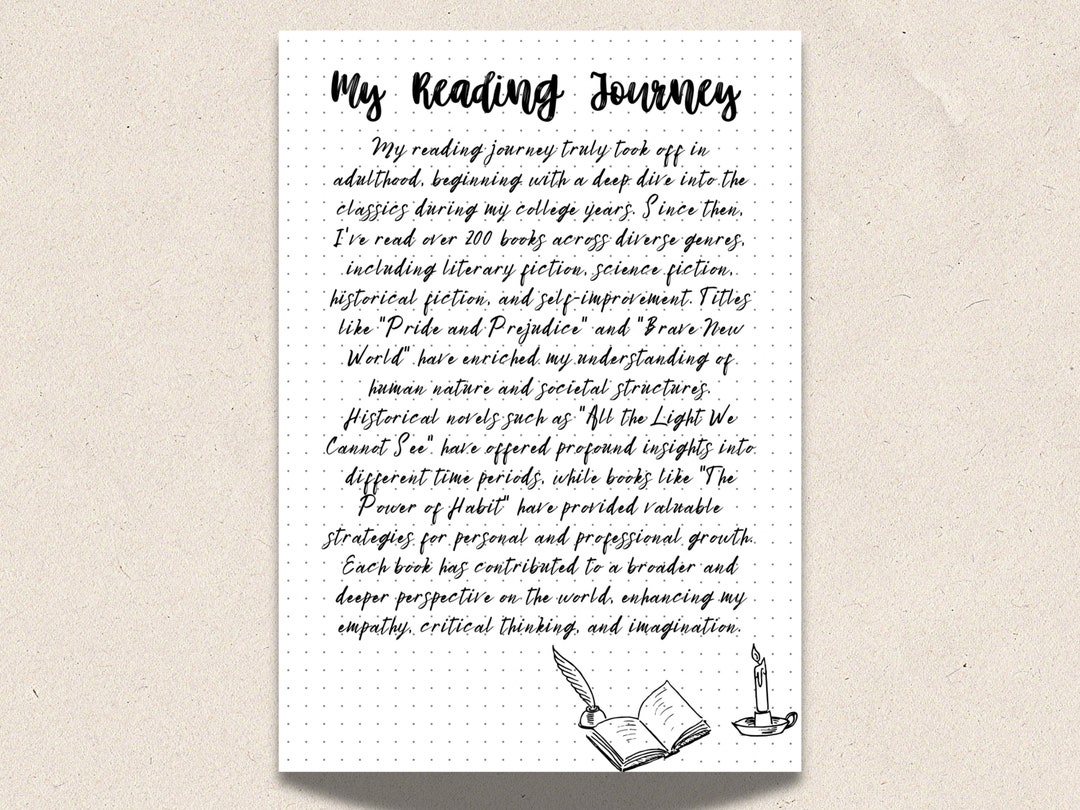 My Reading Journey
My reading journey truly took off in
adulthood, beginning with a deep dive into the
classics during my college years. Since then,
I've read over 200 books across diverse genres,
including literary fiction, science fiction,
historical fiction, and self-improvement. Titles
like "Pride and Prejudice" and "Brave New
World" have enriched my understanding of
human nature and societal structures.
Historical novels such as "All the Light We
Cannot See" have offered profound insights into
different time periods, while books like "The
Power of Habit" have provided valuable
strategies for personal and professional growth.
Each book has contributed to a broader and
deeper perspective on the world, enhancing my
empathy, critical thinking, and imagination.